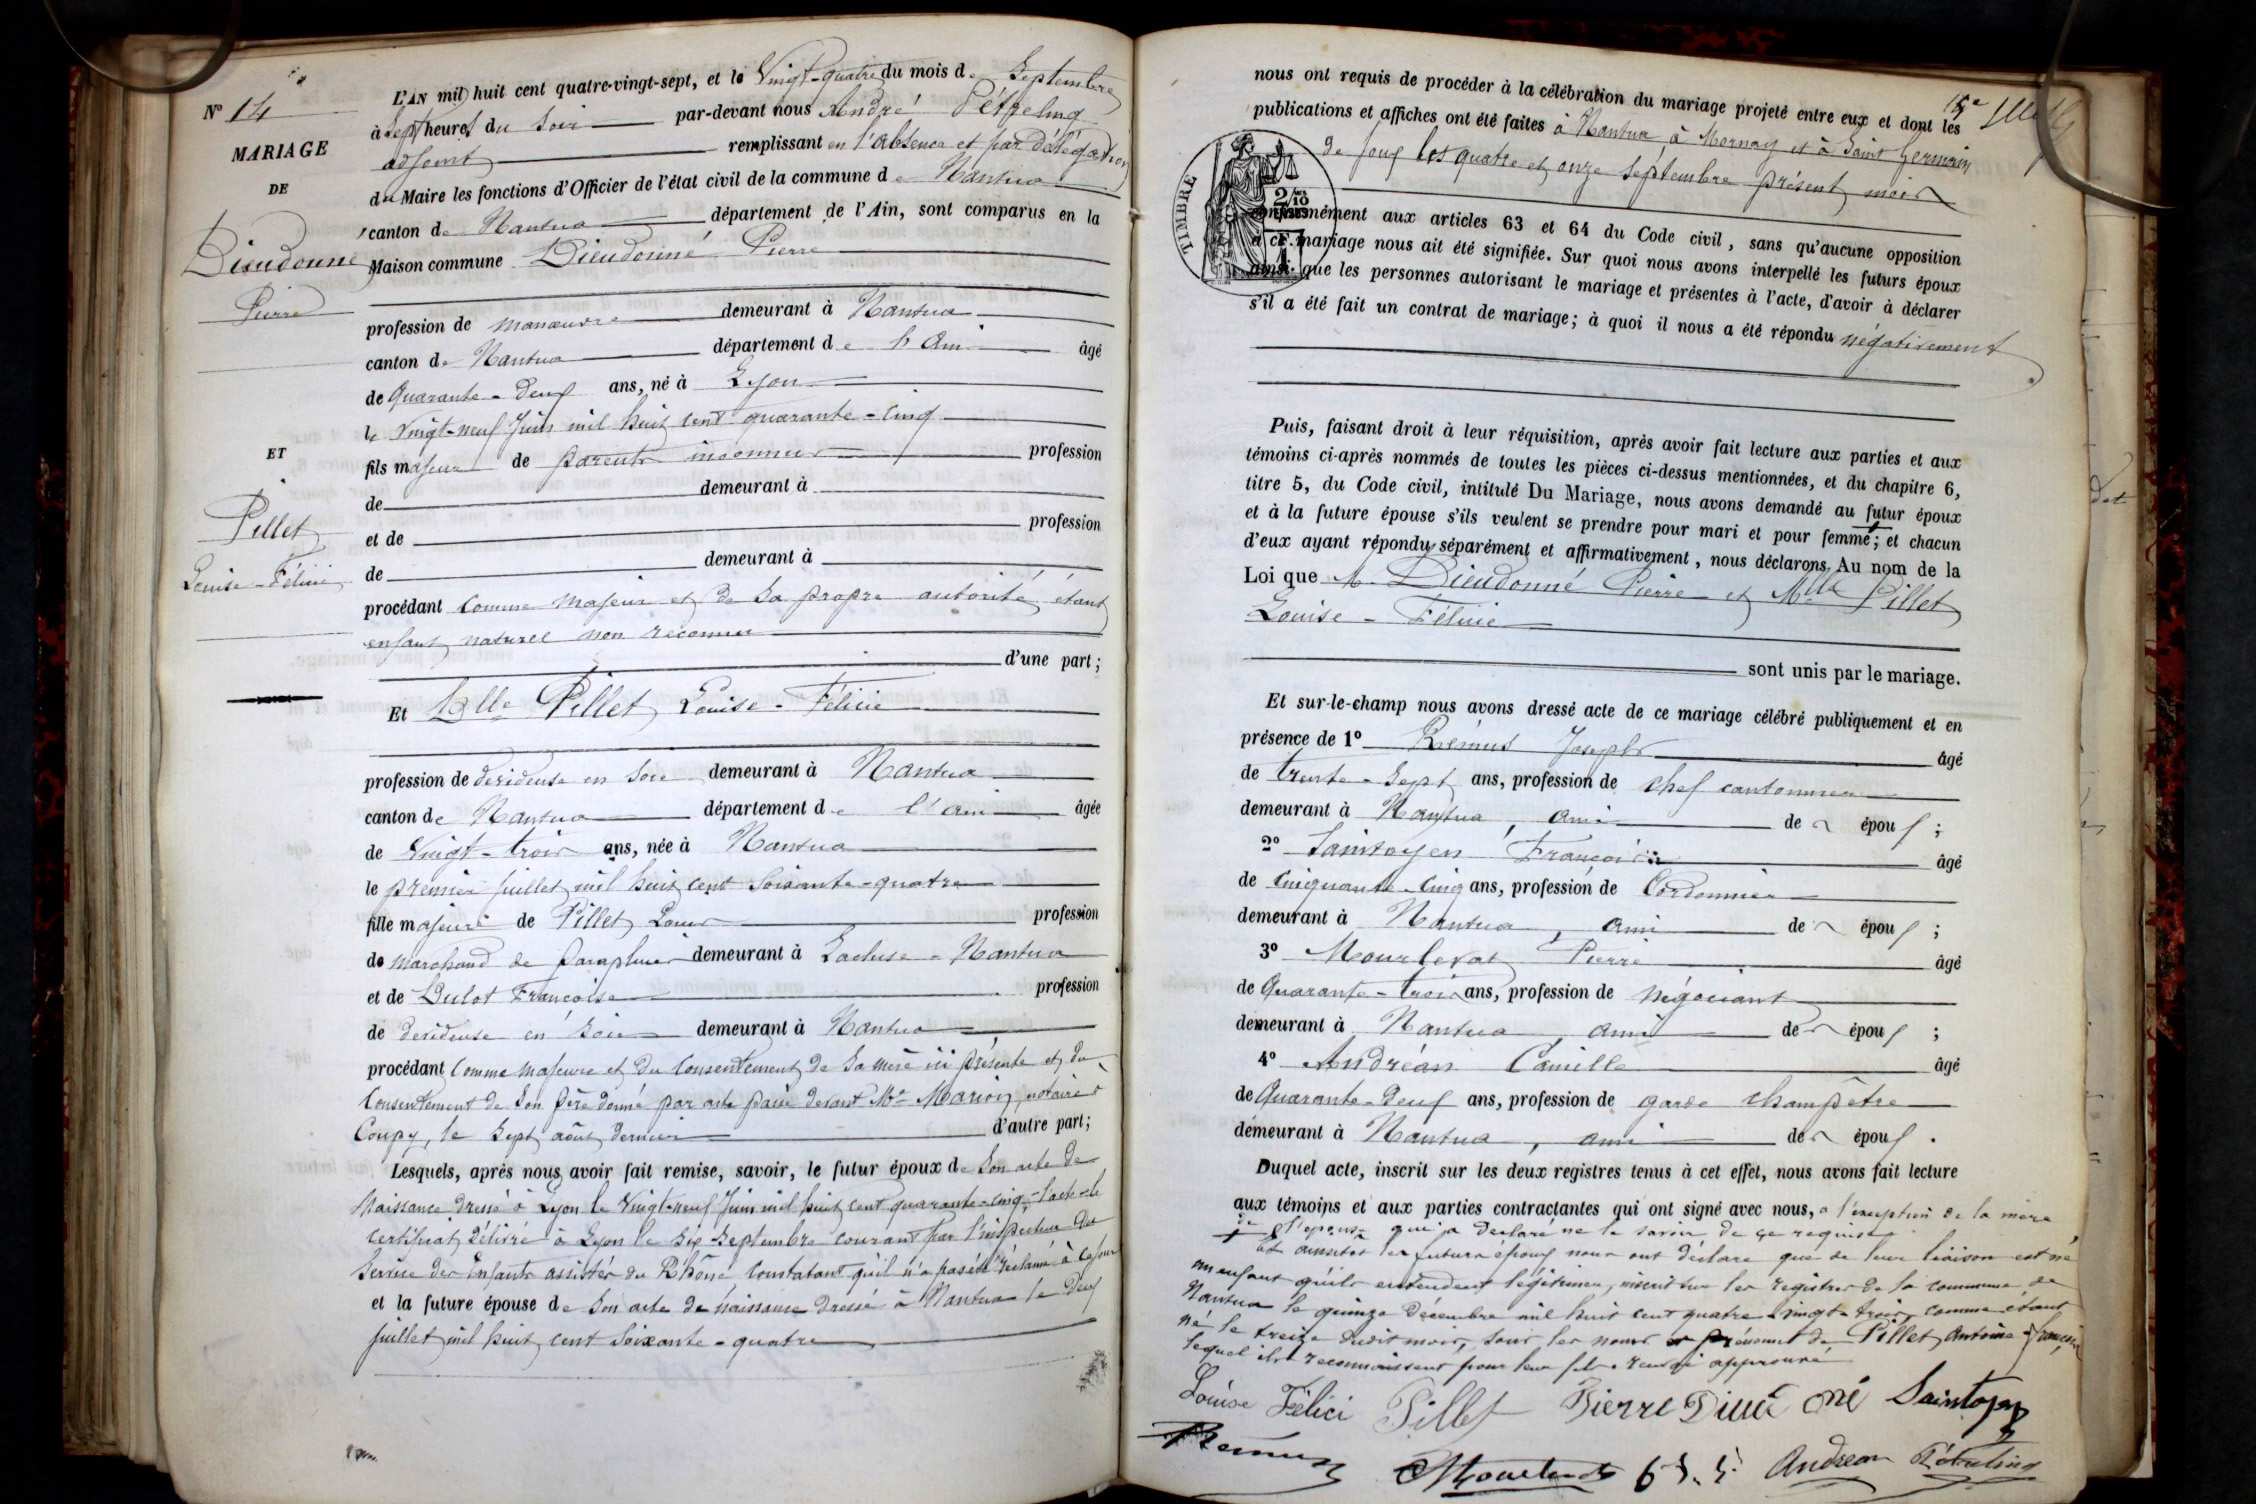 N° 14
MARIAGE
DE
Dieudonné
Pierre
ET
Pillet
Louise-Félicie
L'AN mil huit cent quatre-vingt-sept, et le Vingt-quatre du mois de Septembre
à Sept heures du soir par-devant nous André Pételing
adjoint remplissant en l'absence et par délégation
du Maire les fonctions d'Officier de l'état civil de la commune de Nantua
canton de Nantua département de l'Ain, sont comparus en la
Maison commune Dieudonné Pierre
profession de manœuvre demeurant à Nantua
canton de Nantua département de l'Ain âgé
de Quarante-deux ans, né à Lyon
le Vingt-neuf Juin mil huit cent quarante-cinq
fils majeur de parents inconnus profession
de demeurant à
et de profession
de demeurant à
procédant comme majeur et de sa propre autorité étant
enfant naturel non reconnu
d'une part;
Et Delle Pillet Louise-Félicie
profession de dévideuse en soie demeurant à Nantua
canton de Nantua département de l'ain âgée
de Vingt-trois ans, née à Nantua
le premier juillet mil huit cent soixante-quatre
fille majeure de Pillet Louis profession
de marchand de parapluies demeurant à Lacluse-Nantua
et de Dulot Françoise profession
de dévideuse en soie demeurant à Nantua
procédant comme majeure et du consentement de sa mère ici présente et du
consentement de son père donné par acte passé devant Me Marion, notaire à
Coupy, le sept août dernier d'autre part;
Lesquels, après nous avoir fait remise, savoir, le futur époux de son acte de
Naissance dressé à Lyon le Vingt-neuf Juin mil huit cent quarante-cinq,
certificat délivré à Lyon le six septembre courant par l'inspecteur du
service des Enfants assistés du Rhône constatant qu'il n'a pas été réclamé à ce jour
et la future épouse de son acte de naissance dressé à Nantua le deux
juillet mil huit cent soixante-quatre
nous ont requis de procéder à la célébration du mariage projeté entre eux et dont les
publications et affiches ont été faites à Nantua, à Mornay et à Saint Germain
de Joux les quatre et onze septembre présent mois
TIMBRE
2/10
conformément aux articles 63 et 64 du Code civil, sans qu'aucune opposition
à ce mariage nous ait été signifiée. Sur quoi nous avons interpellé les futurs époux
ainsi que les personnes autorisant le mariage et présentes à l'acte, d'avoir à déclarer
s'il a été fait un contrat de mariage; à quoi il nous a été répondu négativement
Puis, faisant droit à leur réquisition, après avoir fait lecture aux parties et aux
témoins ci-après nommés de toutes les pièces ci-dessus mentionnées, et du chapitre 6,
titre 5, du Code civil, intitulé Du Mariage, nous avons demandé au futur époux
et à la future épouse s'ils veulent se prendre pour mari et pour femme; et chacun
d'eux ayant répondu séparément et affirmativement, nous déclarons. Au nom de la
Loi que M. Dieudonné Pierre et Mlle Pillet
Louise-Félicie
sont unis par le mariage.
Et sur-le-champ nous avons dressé acte de ce mariage célébré publiquement et en
présence de 1° Rémus Joseph âgé
de trente-sept ans, profession de chef cantonnier
demeurant à Nantua, ami de époux;
2° Saintoyen François âgé
de cinquante-cinq ans, profession de Cordonnier
demeurant à Nantua, ami de époux;
3° Mourlevat Pierre âgé
de Quarante-trois ans, profession de négociant
demeurant à Nantua, ami des époux;
4° Andréan Camille âgé
de Quarante-deux ans, profession de garde champêtre
demeurant à Nantua, ami des époux.
Duquel acte, inscrit sur les deux registres tenus à cet effet, nous avons fait lecture
aux témoins et aux parties contractantes qui ont signé avec nous, à l'exception de la mère
de l'épouse qui a déclaré ne le savoir de ce requise
et aussitôt les futurs époux nous ont déclaré que de leur liaison est né
un enfant qu'ils entendent légitimer, inscrit sur les registres de la commune de
Nantua le quinze Décembre mil huit cent quatre-vingt-trois, comme étant
né le treize dudit mois, sous les noms et prénoms de Pillet Antoine-François
lequel ils reconnaissent pour leur fils. renvoi approuvé
Louise Félici Pillet Pierre Dieudoné Saintoyen
Rémus Mourlevat Andréan Pételing